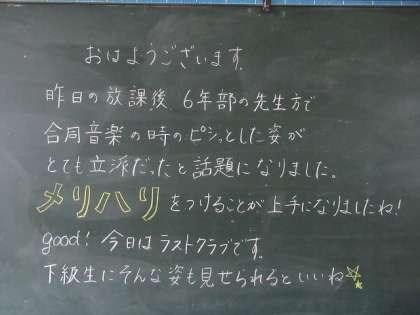 おはようございます。
昨日の放課後、6年部の先生方で
合同音楽の時のピシッとした姿が
とても立派だったと話題になりました。
メリハリをつけることが上手になりましたね!
good! 今日はラストクラブです。
下級生にそんな姿も見せられるといいね☆